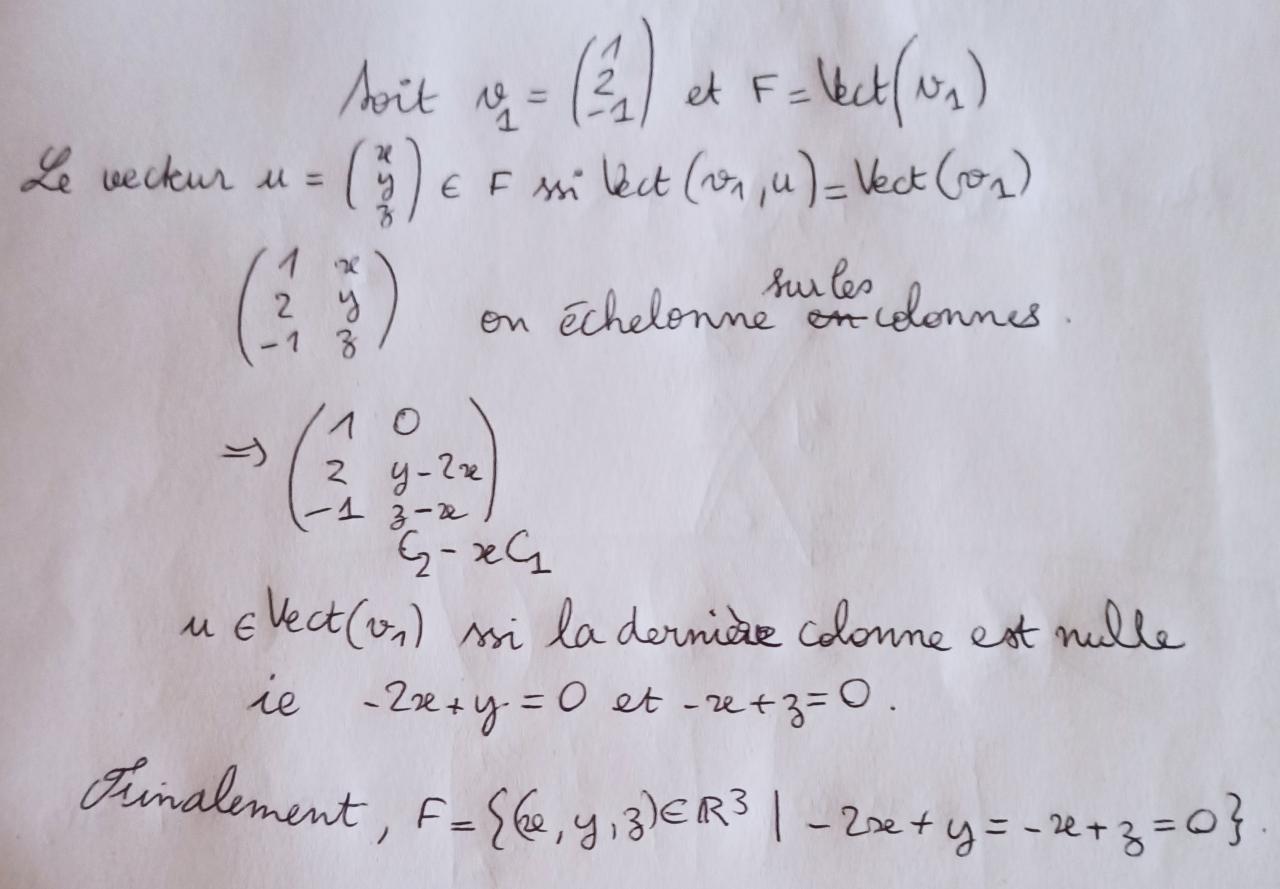 Soit v₁ = (1 2 -1) et F = Vect(v₁)
Le vecteur u = (x y z) ∈ F ssi Vect(v₁, u) = Vect(v₁)
(1 x
2 y
-1 z) on échelonne sur les ~~en~~ colonnes.
⇒ (1 0
2 y-2x
-1 z-x)
C₂ - xC₁
u ∈ Vect(v₁) ssi la dernière colonne est nulle
ie -2x + y = 0 et -x + z = 0.
Finalement, F = {(x, y, z) ∈ ℝ³ | -2x + y = -x + z = 0}.